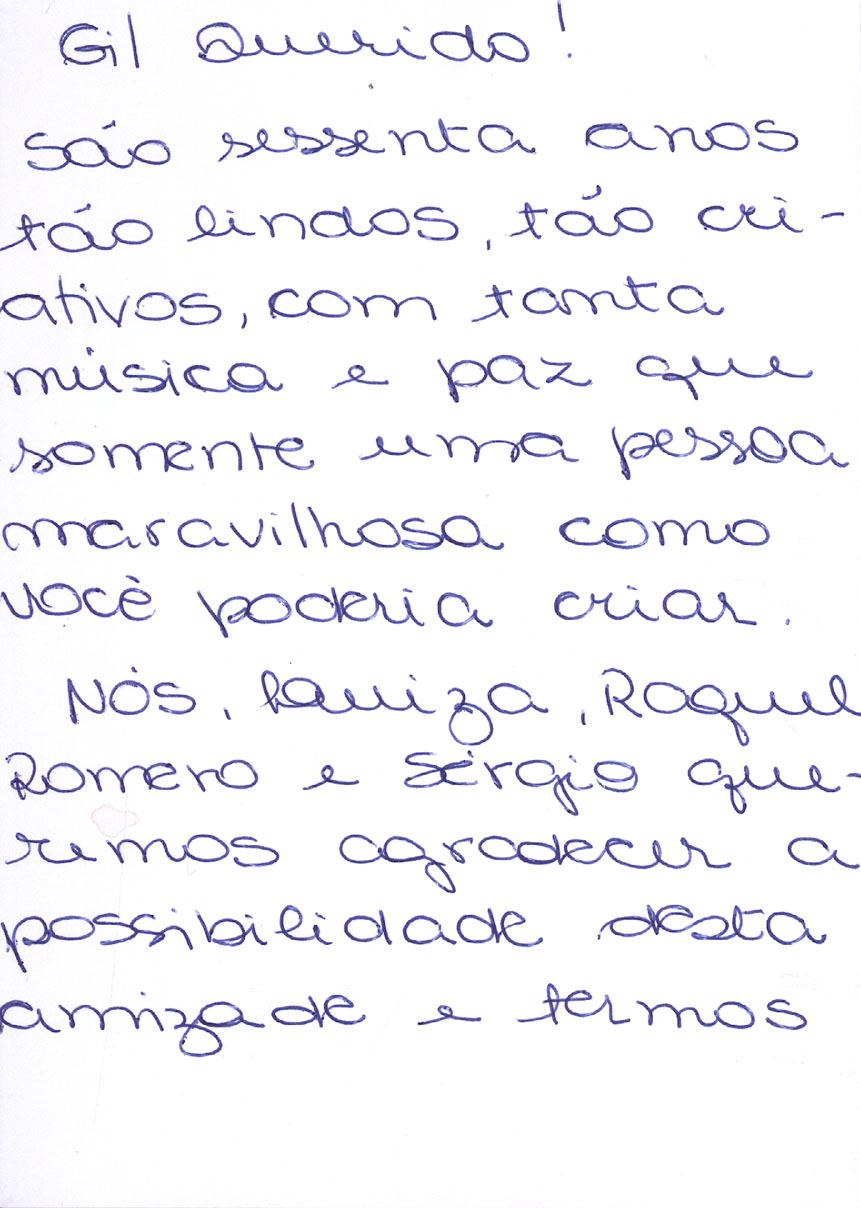 Gil Querido!
São sessenta anos
tão lindos, tão cri-
ativos, com tanta
música e paz que
somente uma pessoa
maravilhosa como
você poderia criar.
Nós, , Raquel
Romero e Sérgio que-
remos agradecer a
possibilidade desta
amizade e termos